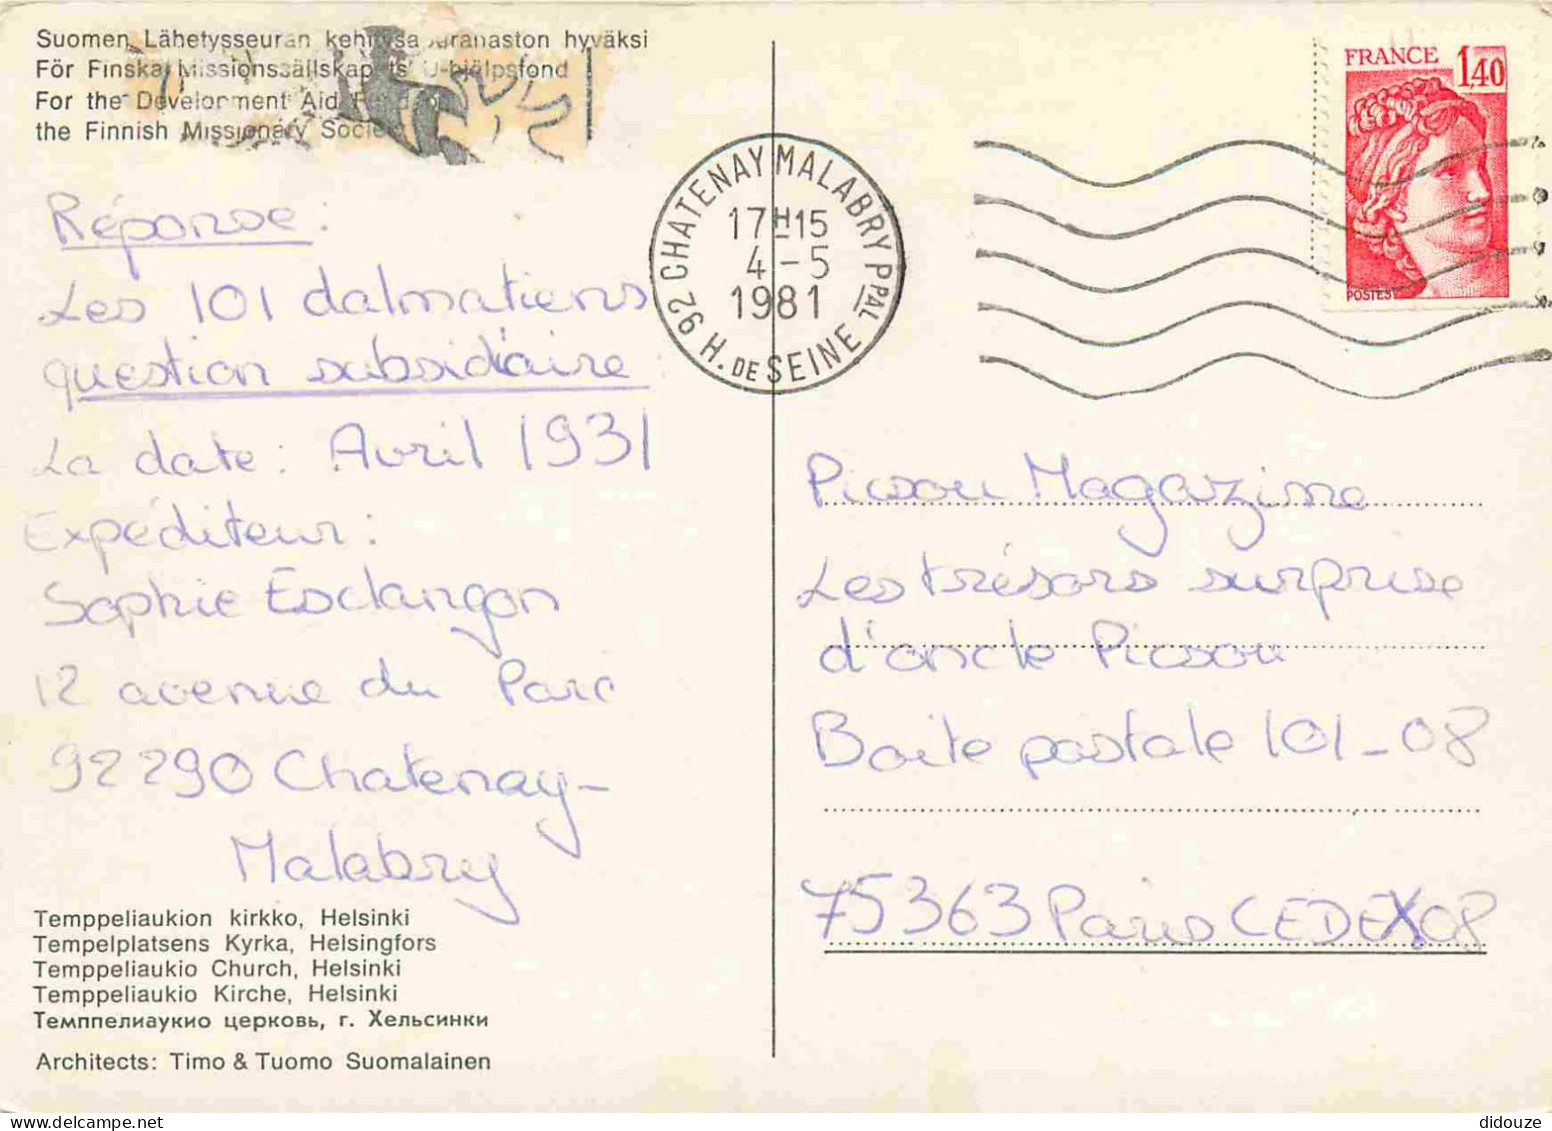 Suomen Lähetysseuran hyväksi
För Finska Missionssällskapets U-hjälpsfond
For the Development Aid Fund of
the Finnish Missionary Society
Réponse :
Les 101 dalmatiens
question subsidiaire
La date : Avril 1931
Expéditeur :
Sophie Esclangon
12 avenue du Parc
92290 Chatenay-
Malabry
Temppeliaukion kirkko, Helsinki
Tempelplatsens Kyrka, Helsingfors
Temppeliaukio Church, Helsinki
Temppeliaukio Kirche, Helsinki
Темппелиаукио церковь, г. Хельсинки
Architects: Timo & Tuomo Suomalainen
92 CHATENAY MALABRY PPAL
17H15
4-5
1981
H. DE SEINE
FRANCE 1,40
POSTES
Picsou Magazine
Les trésors surprise
d'oncle Picsou
Boite postale 101-08
75363 Paris CEDEX 08
didouze